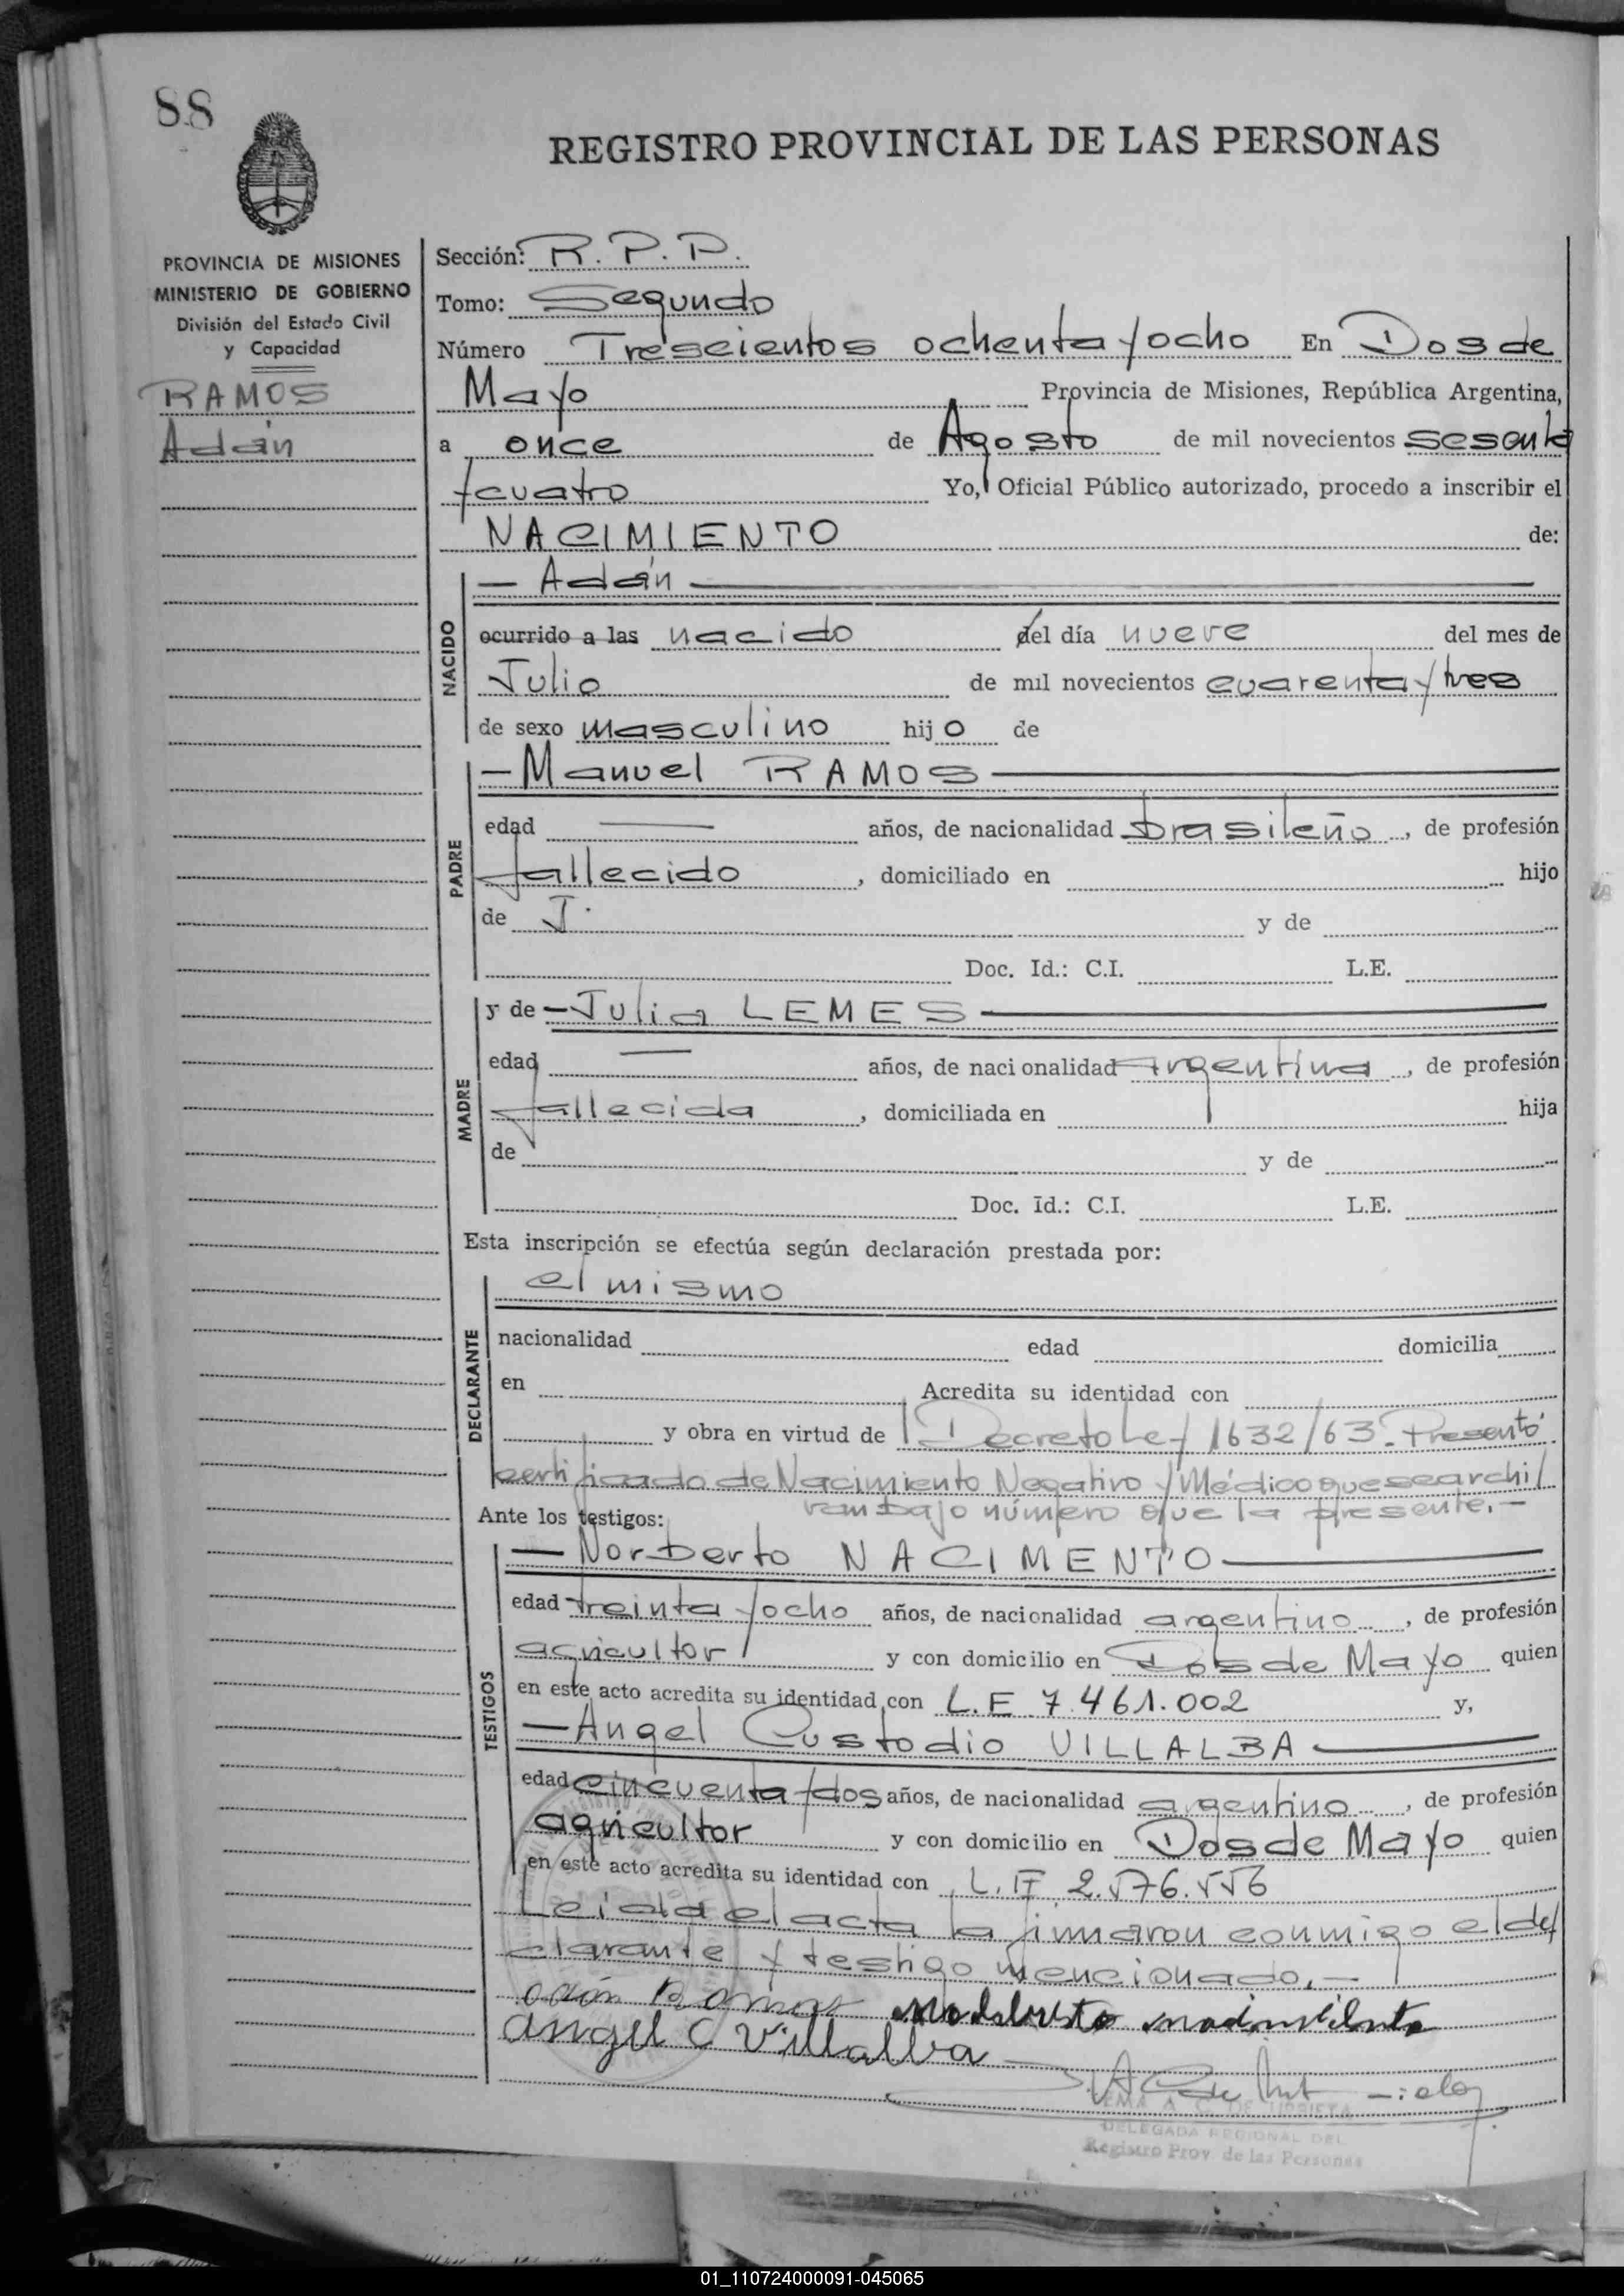 88
REGISTRO PROVINCIAL DE LAS PERSONAS
PROVINCIA DE MISIONES
MINISTERIO DE GOBIERNO
División del Estado Civil
y Capacidad
RAMOS
Adán
Sección: R. P. P.
Tomo: Segundo
Número Trescientos ochenta y ocho En Dos de
Mayo Provincia de Misiones, República Argentina,
a once de Agosto de mil novecientos sesenta
y cuatro Yo, Oficial Público autorizado, procedo a inscribir el
NACIMIENTO de:
NACIDO
— Adán —
ocurrido a las nacido del día nueve del mes de
Julio de mil novecientos cuarenta y tres
de sexo masculino hijo de
PADRE
— Manuel RAMOS —
edad — años, de nacionalidad brasileño, de profesión
fallecido, domiciliado en hijo
de J. y de
Doc. Id.: C.I. L.E.
MADRE
y de — Julia LEMES —
edad — años, de nacionalidad argentina, de profesión
fallecida, domiciliada en hija
de y de
Doc. Id.: C.I. L.E.
Esta inscripción se efectúa según declaración prestada por:
DECLARANTE
el mismo
nacionalidad edad domicilia
en Acredita su identidad con
y obra en virtud de Decreto Ley 1632/63. Presentó
certificado de Nacimiento Negativo y Médico que se archi/
van bajo número que la presente.-
Ante los testigos:
TESTIGOS
— Norberto NACIMENTO —
edad treinta y ocho años, de nacionalidad argentino, de profesión
agricultor y con domicilio en Dos de Mayo quien
en este acto acredita su identidad con L.E 7.461.002 y,
— Angel Custodio VILLALBA —
edad cincuenta y dos años, de nacionalidad argentino, de profesión
agricultor y con domicilio en Dos de Mayo quien
en este acto acredita su identidad con L. E 2.576.556
Leida el acta la firmaron conmigo el de/
clarante y testigo mencionado.—
adán Ramos
angel C Villalba
EMA A. C. DE URRIETA
DELEGADA REGIONAL DEL
Registro Prov. de las Personas
01_110724000091-045065